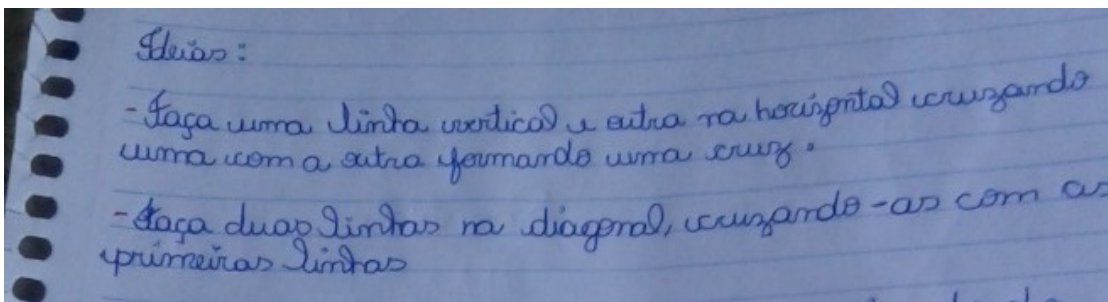 Ideias:
- Faça uma linha vertical e outra na horizontal cruzando
uma com a outra formando uma cruz.
- Faça duas linhas na diagonal, cruzando-as com as
primeiras linhas